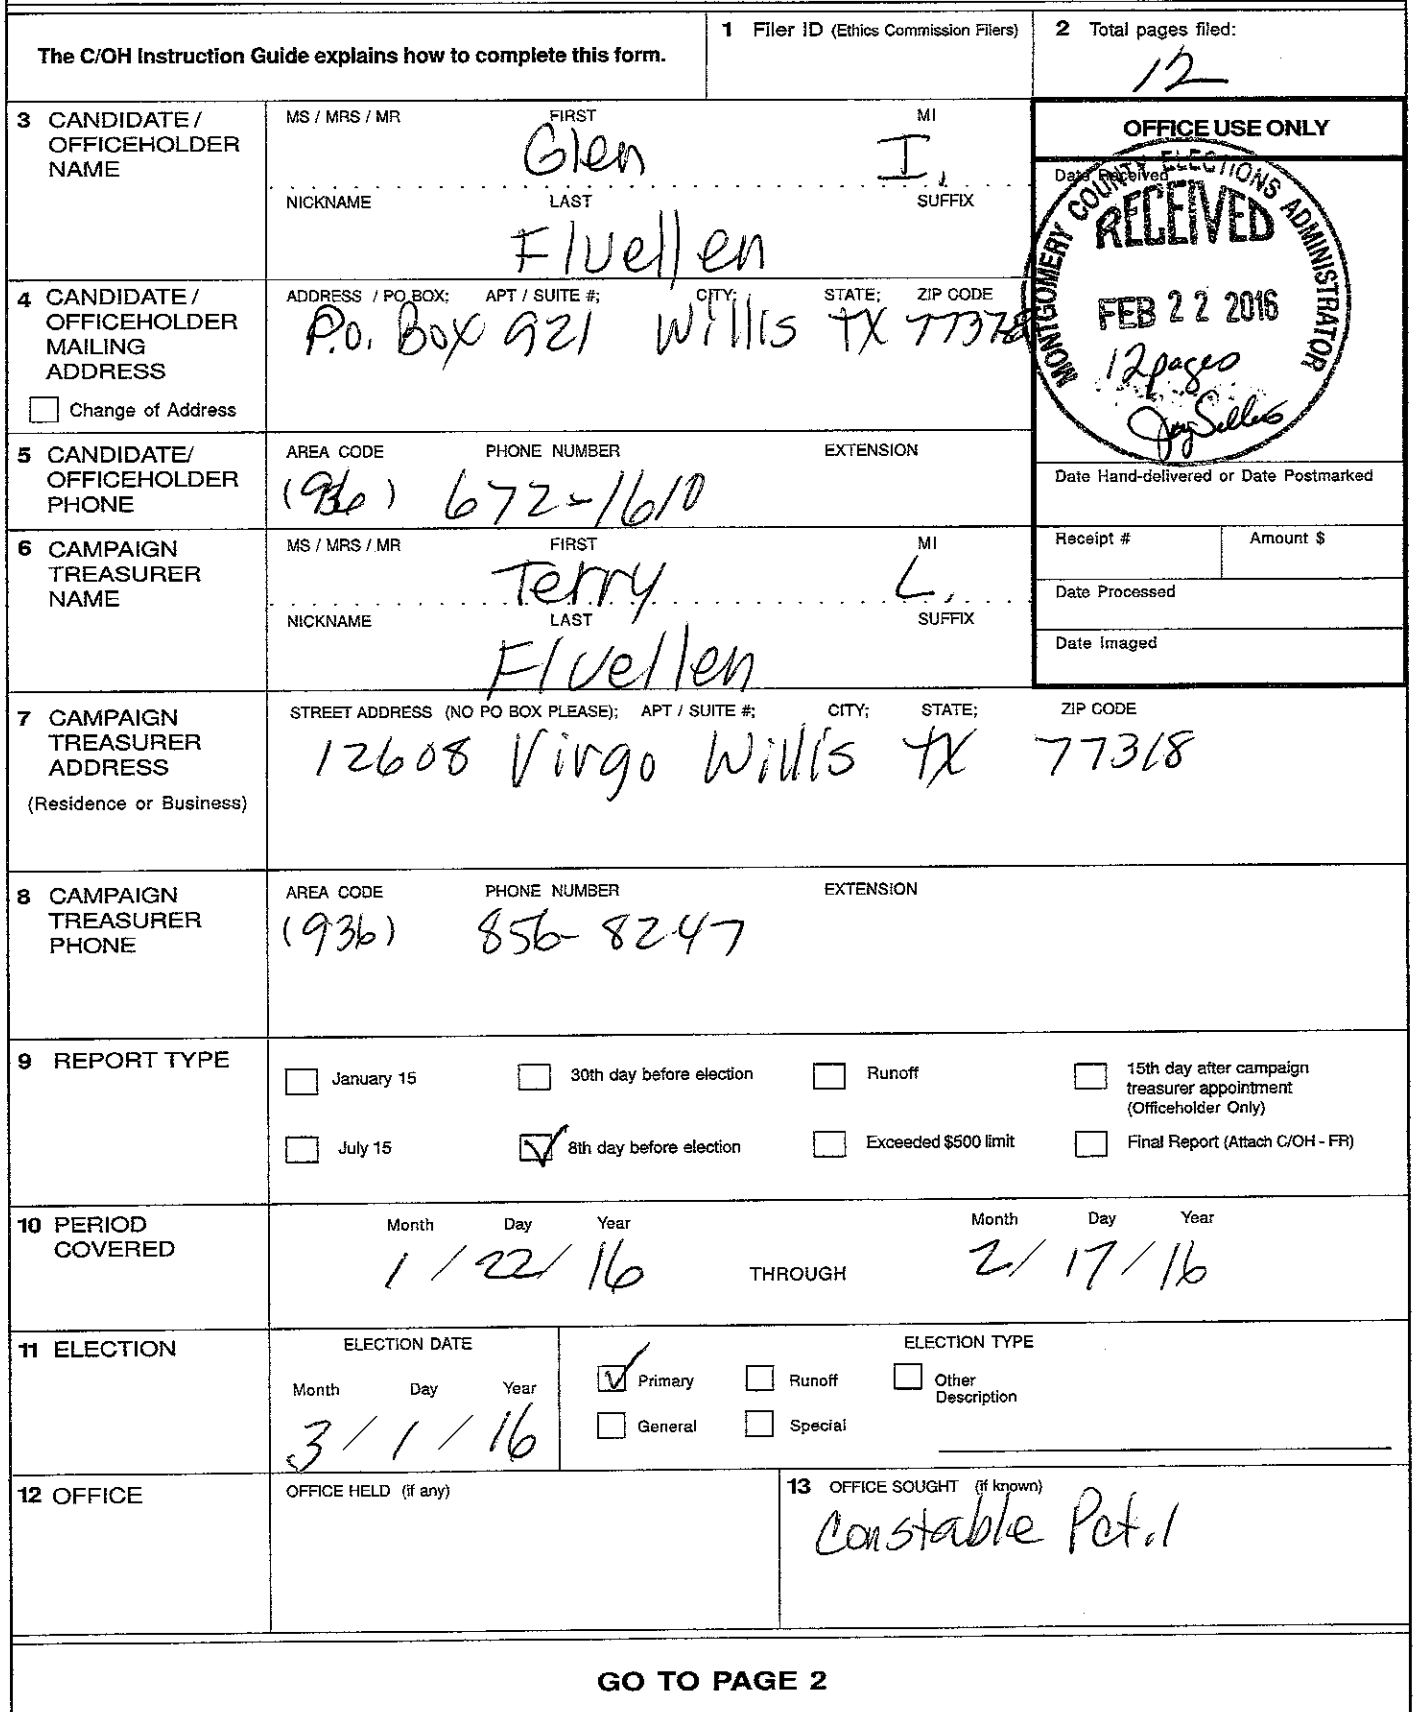 The C/OH Instruction Guide explains how to complete this form.
1 Filer ID (Ethics Commission Filers)
2 Total pages filed:
12
3 CANDIDATE / OFFICEHOLDER NAME
MS / MRS / MR FIRST MI
Glen I.
NICKNAME LAST SUFFIX
Fluellen
OFFICE USE ONLY
Date Received
MONTGOMERY COUNTY ELECTIONS ADMINISTRATOR
RECEIVED
FEB 22 2016
12 pages
Date Hand-delivered or Date Postmarked
Receipt # Amount $
Date Processed
Date Imaged
4 CANDIDATE / OFFICEHOLDER MAILING ADDRESS
Change of Address
ADDRESS / PO BOX; APT / SUITE #; CITY; STATE; ZIP CODE
P.O. Box 921 Willis TX 77378
5 CANDIDATE/ OFFICEHOLDER PHONE
AREA CODE PHONE NUMBER EXTENSION
(936) 672-1610
6 CAMPAIGN TREASURER NAME
MS / MRS / MR FIRST MI
Terry L.
NICKNAME LAST SUFFIX
Fluellen
7 CAMPAIGN TREASURER ADDRESS
(Residence or Business)
STREET ADDRESS (NO PO BOX PLEASE); APT / SUITE #; CITY; STATE; ZIP CODE
12608 Virgo Willis TX 77318
8 CAMPAIGN TREASURER PHONE
AREA CODE PHONE NUMBER EXTENSION
(936) 856-8247
9 REPORT TYPE
January 15 30th day before election Runoff 15th day after campaign treasurer appointment (Officeholder Only)
July 15 8th day before election Exceeded $500 limit Final Report (Attach C/OH - FR)
10 PERIOD COVERED
Month Day Year Month Day Year
1 / 22 / 16 THROUGH 2 / 17 / 16
11 ELECTION
ELECTION DATE
Month Day Year
3 / 1 / 16
ELECTION TYPE
Primary Runoff Other Description
General Special
12 OFFICE
OFFICE HELD (if any)
13 OFFICE SOUGHT (if known)
Constable Pct. 1
GO TO PAGE 2